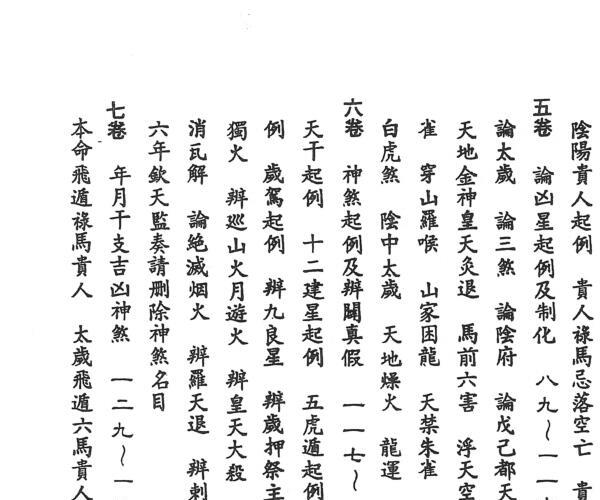 陰陽貴人起例　貴人祿馬忌落空亡　貴
五卷　論凶星起例及制化　八九～一一
論太歲　論三煞　論陰府　論戊己都天
天地金神皇天灸退　馬前六害　浮天空
雀　穿山羅睺　山家困龍　天禁朱雀
白虎煞　陰中太歲　天地燥火　龍運
六卷　神煞起例及辦闢真假　一一七～
天干起例　十二建星起例　五虎遁起例
例　歲駕起例　辦九良星　辦歲押祭主
獨火　辦巡山火月遊火　辦皇天大殺
消瓦解　論絶滅烟火　辦羅天退　辦刺
六年欽天監奏請刪除神煞名目
七卷　年月干支吉凶神煞　一二九～一
本命飛遁祿馬貴人　太歲飛遁六馬貴人